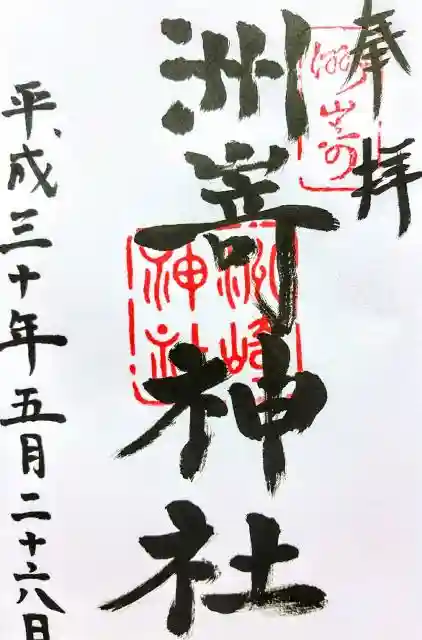 奉拝
洲嵜神社
平成三十年五月二十六日
洲崎神社